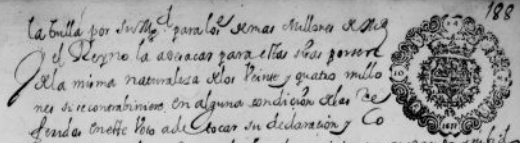 188
la bulla por su Mg.d para los demas millones de
y el Reyno la a de sacar para estas por ser
de la misma naturaleza de los Veinte y quatro millo
nes si se contrabiniere en alguna condicion de las Re
feridas en este Voto a de tocar su declaracion y Co